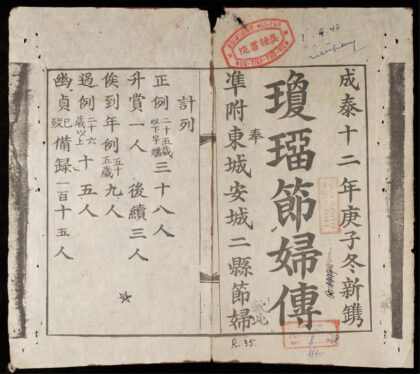 成泰十二年庚子冬新鐫
瓊瑠節婦傳
奉
準附東城安城二縣節婦
計列
正例二十五歲以下早孀三十八人
升賞一人 後續三人
俟到年例五十五歲九人
過例二十六歲以上十五人
幽貞已歿備録一百十五人
R.35.